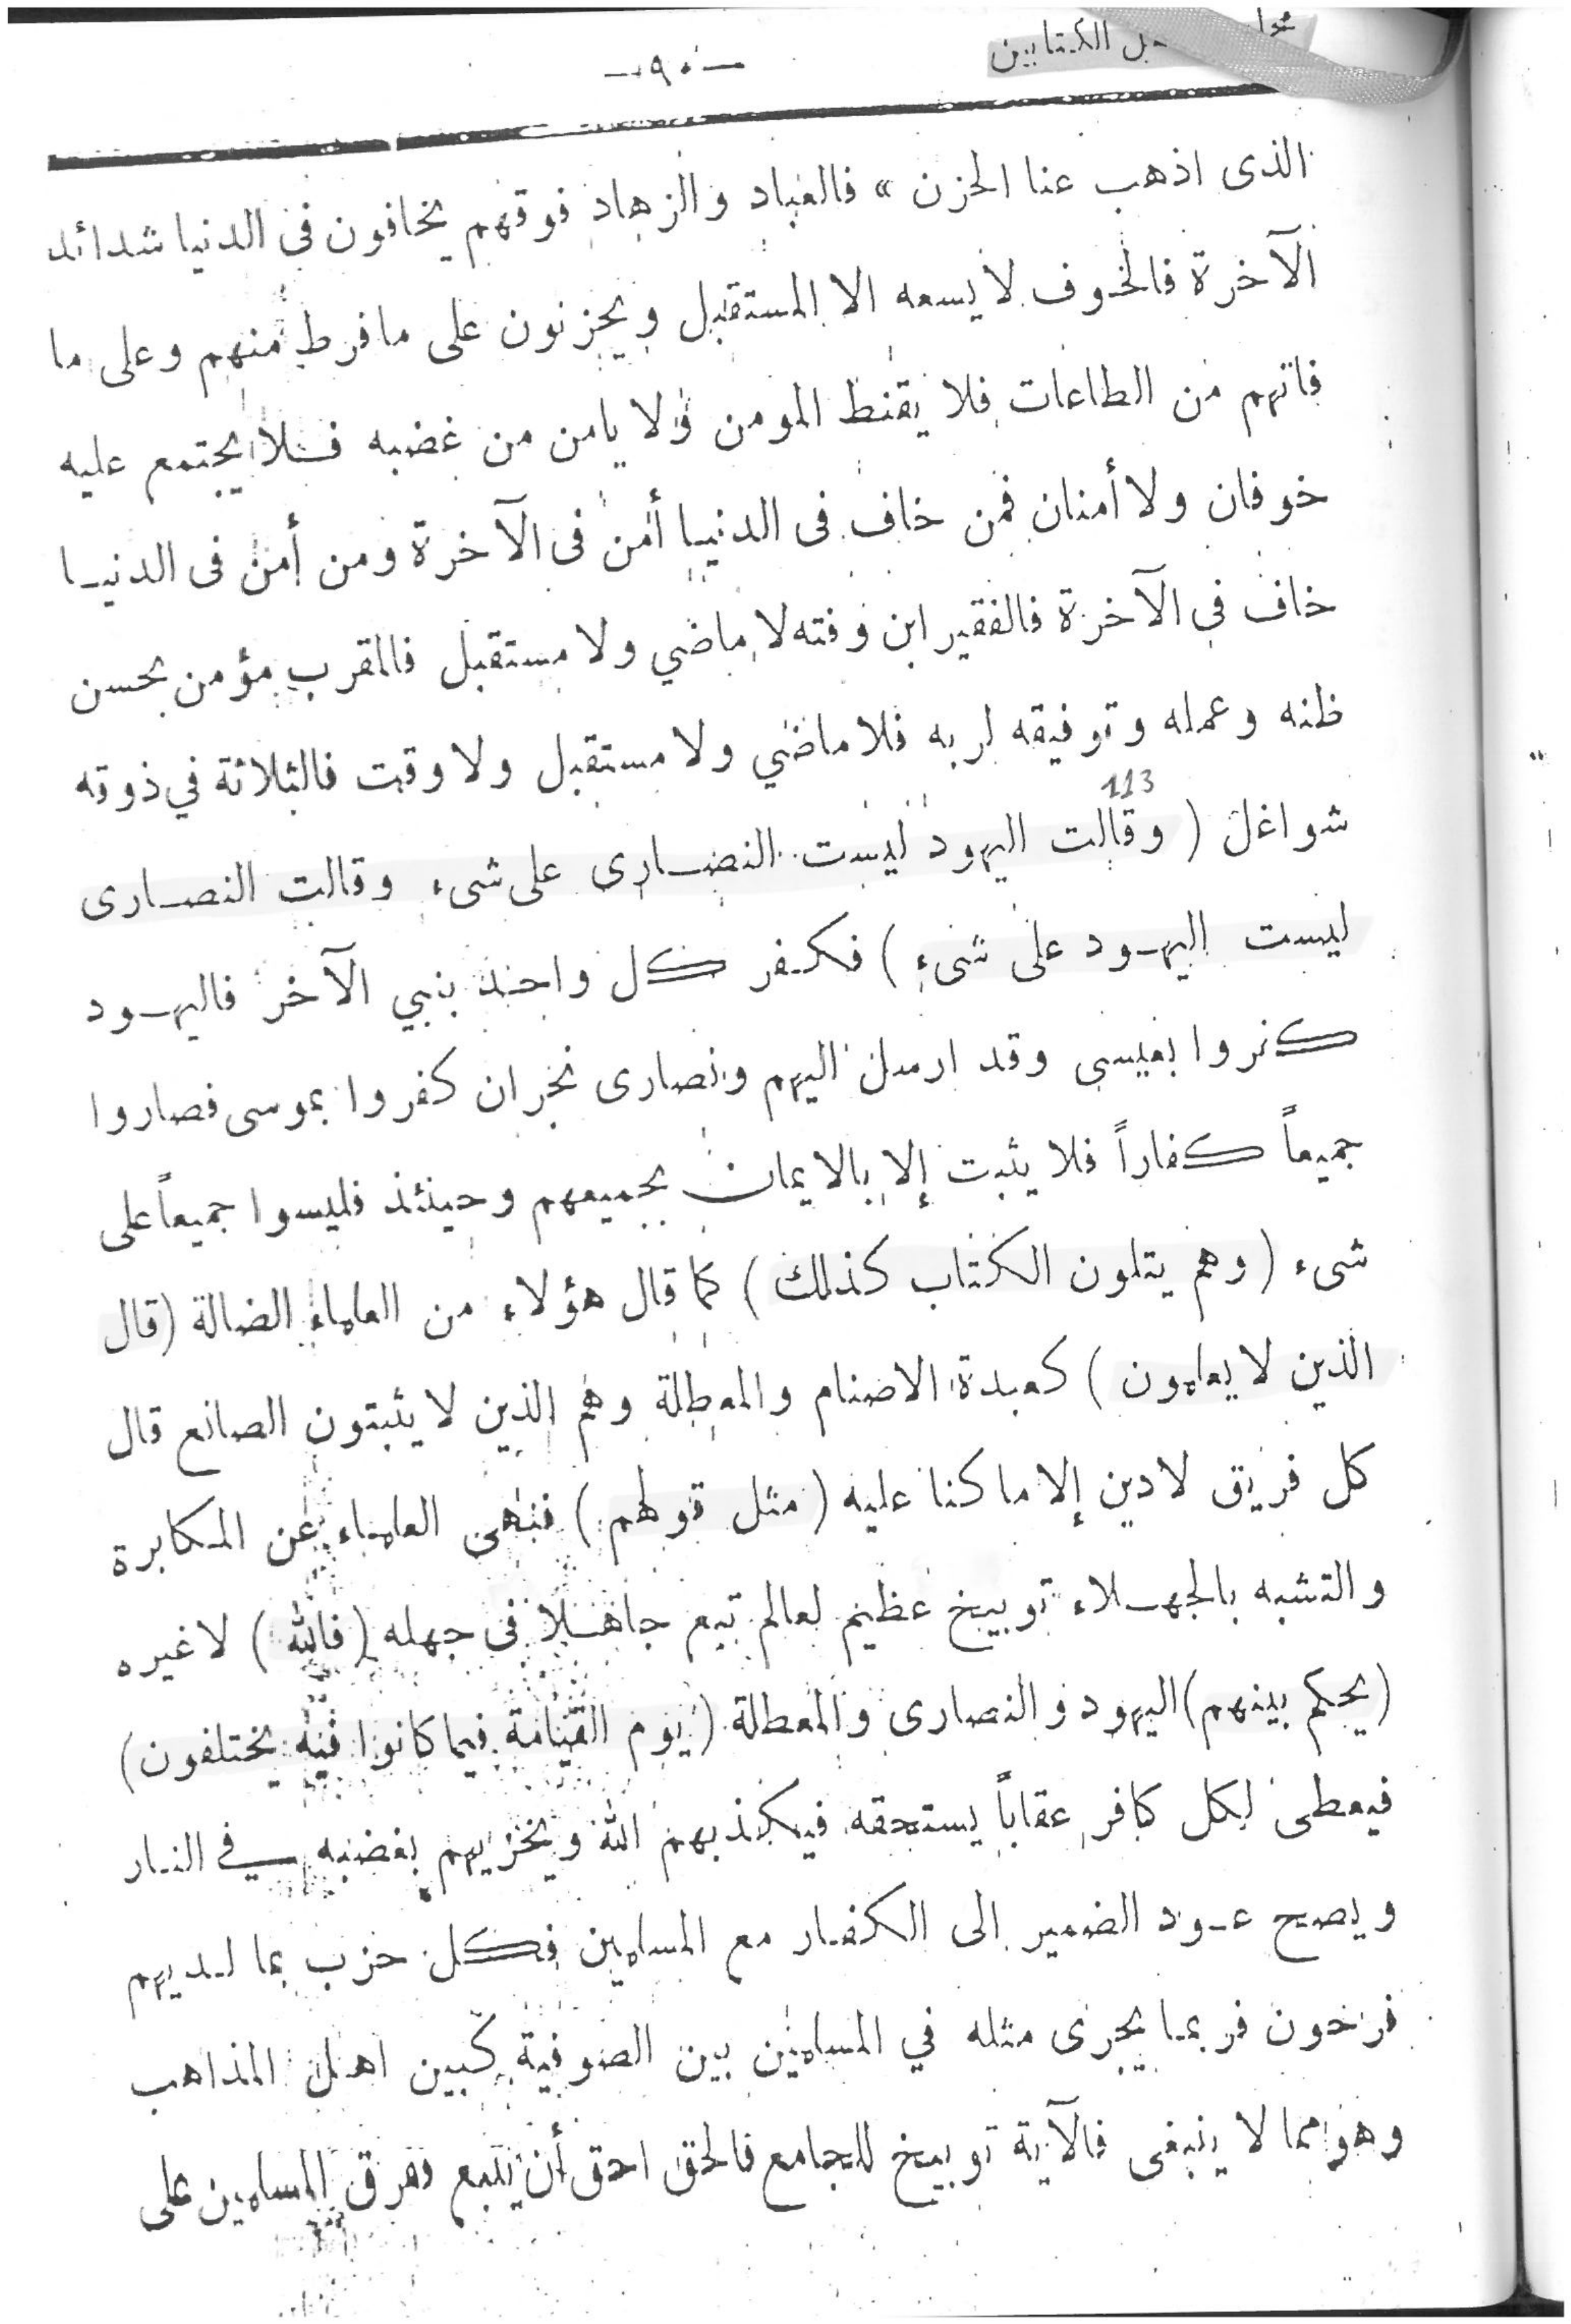 الكتابين
—٩٠—
الذى اذهب عنا الحزن » فالعباد والزهاد فوقهم يخافون فى الدنيا شدائد
الآخرة فالخوف لا يسعه الا المستقبل ويحزنون على ما فرط منهم وعلى ما
فاتهم من الطاعات فلا يقنط المومن ولا يامن من غضبه فلا يجتمع عليه
خوفان ولا أمنان فمن خاف فى الدنيا أمن فى الآخرة ومن أمن فى الدنيا
خاف في الآخرة فالفقير ابن وقته لا ماضي ولا مستقبل فالمقرب مؤمن بحسن
ظنه وعمله وتوفيقه لربه فلا ماضي ولا مستقبل ولا وقت فالثلاثة في ذوقه
113
شواغل ( وقالت اليهود ليست النصارى على شىء وقالت النصارى
ليست اليهود على شىء ) فكفر كل واحد بنبي الآخر فاليهود
كفروا بعيسى وقد ارسل اليهم ونصارى نجران كفروا بموسى فصاروا
جميعاً كفاراً فلا يثبت إلا بالايمان بجميعهم وحينئذ فليسوا جميعاً على
شىء ( وهم يتلون الكتاب كذلك ) كما قال هؤلاء من العلماء الضالة ( قال
الذين لا يعلمون ) كعبدة الاصنام والمعطلة وهم الذين لا يثبتون الصانع قال
كل فريق لا دين إلا ما كنا عليه ( مثل قولهم ) فنهى العلماء عن المكابرة
والتشبه بالجهلاء توبيخ عظيم لعالم تبع جاهلا فى جهله ( فالله ) لا غيره
( يحكم بينهم ) اليهود والنصارى والمعطلة ( يوم القيامة فيما كانوا فيه يختلفون )
فيعطى لكل كافر عقاباً يستحقه فيكذبهم الله ويخزيهم بغضبه في النار
ويصح عود الضمير الى الكفار مع المسلمين فكل حزب بما لديهم
فرحون فربما يجرى مثله في المسلمين بين الصوفية كبين اهل المذاهب
وهو مما لا ينبغى فالآية توبيخ للجامع فالحق احق أن يتبع ففرق المسلمين على